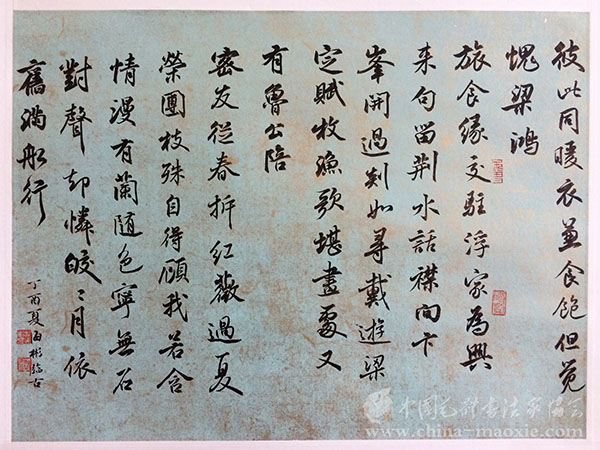 彼此同暖衣兼食飽但覺
愧梁鴻
旅食緣交駐浮家為興
来句留荆水話襟向卞
峯開過剡如尋戴遊梁
定賦枚漁歌堪畫處又
有魯公陪
密友從春拆紅薇過夏
榮團枝殊自得顧我若含
情漫有蘭隨色寧無石
對聲却憐皎々月依
舊滿船行
丁酉夏白彬臨古
中国毛体书法家协会
www.china-maoxie.com